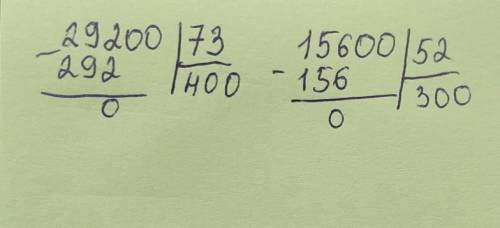 29200 | 73
- 292 | 400
0
15600 | 52
- 156 | 300
0